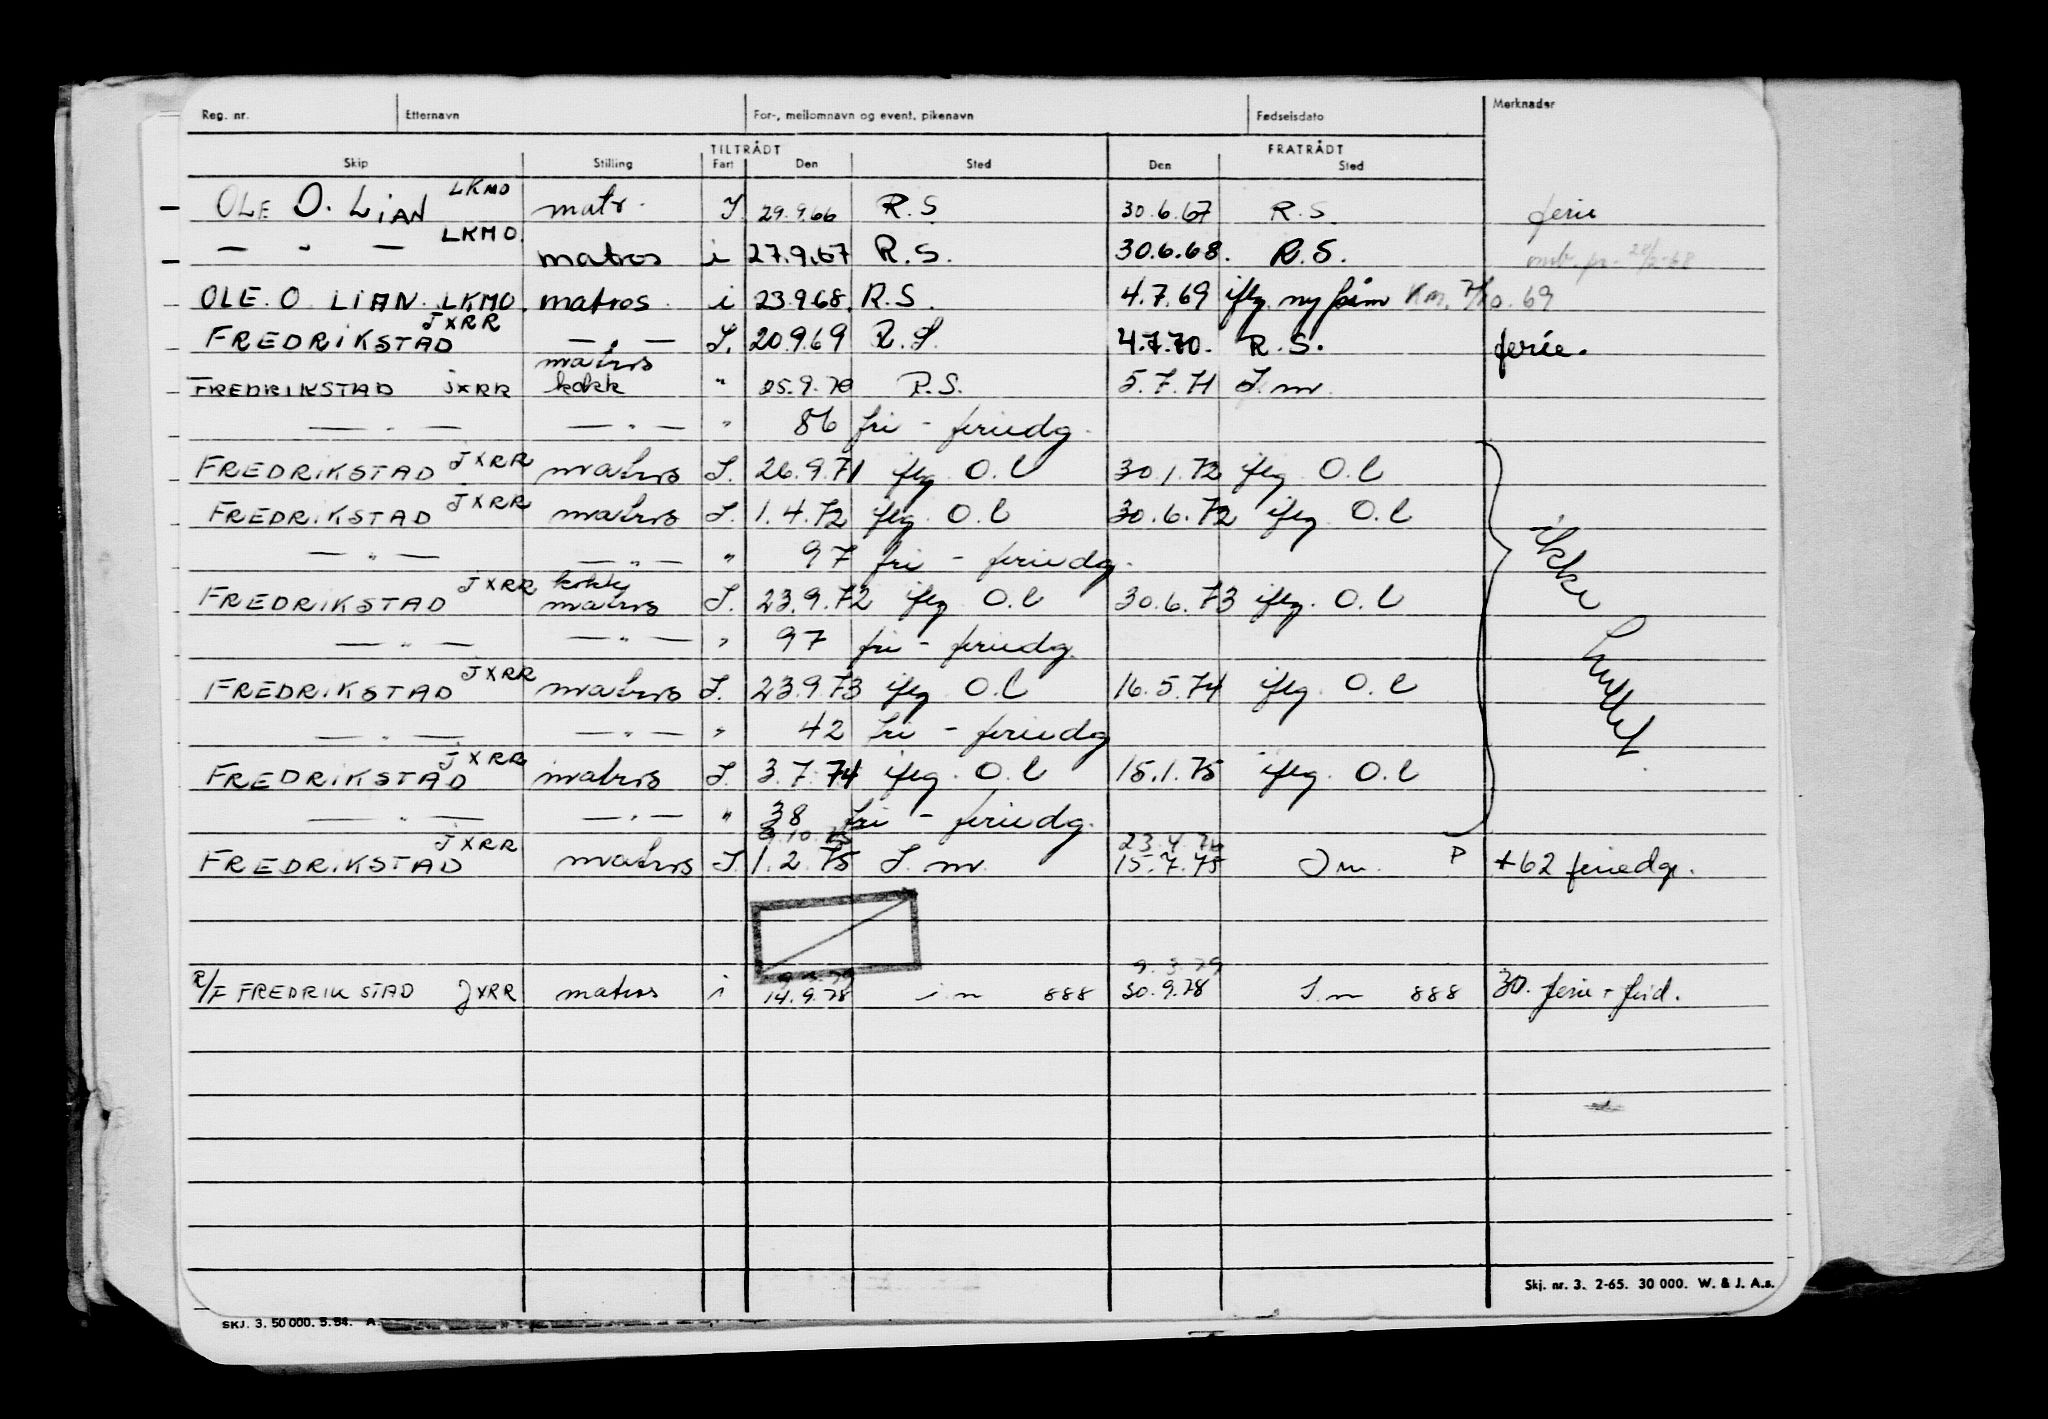 Reg. nr. Etternavn For-, mellomnavn og event. pikenavn Fødselsdato Merknader
TILTRÅDT FRATRÅDT
Skip Stilling Fart Den Sted Den Sted
OLE O. LIAN LKMO matr. I. 29.9.66 R.S 30.6.67 R.S. ferie
— " — LKMO. matros i 27.9.67 R.S. 30.6.68. R.S.
OLE. O. LIAN. LKMO. matros i 23.9.68. R.S. 4.7.69 iflg. ny
FREDRIKSTAD JXRR — " — I. 20.9.69 R.S. 4.7.70. R.S. ferie.
FREDRIKSTAD JXRR matros kokk " 25.9.70 R.S. 5.7.71 I. m.
— " — — " — " 86 fri - feriedg.
FREDRIKSTAD JXRR matros I. 26.9.71 iflg. O.l 30.1.72 iflg. O.l
FREDRIKSTAD JXRR matros I. 1.4.72 iflg. O.l 30.6.72 iflg. O.l
— " — — " — " 97 fri - feriedg.
FREDRIKSTAD JXRR matros I. 23.9.72 iflg O.l 30.6.73 iflg. O.l
— " — — " — " 97 fri - feriedg.
FREDRIKSTAD JXRR matros I. 23.9.73 iflg O.l 16.5.74 iflg. O.l
— " — — " — " 42 fri - feriedg
FREDRIKSTAD JXRR matros I. 3.7.74 iflg. O.l 15.1.75 iflg. O.l
— " — — " — " 38 fri - feriedg.
ikke hullet
23.4.76
FREDRIKSTAD JXRR matros I. 1.2.75 I. m. 15.7.75 I m. P +62 feriedg.
9.3.79
R/F FREDRIKSTAD JXRR matros i 14.9.78 i. m 888 30.9.78 I. m 888 30. ferie + frid.
Skj. nr. 3. 2-65. 30 000. W. & J. A.s.
SKJ. 3. 50 000. 5.54. A.